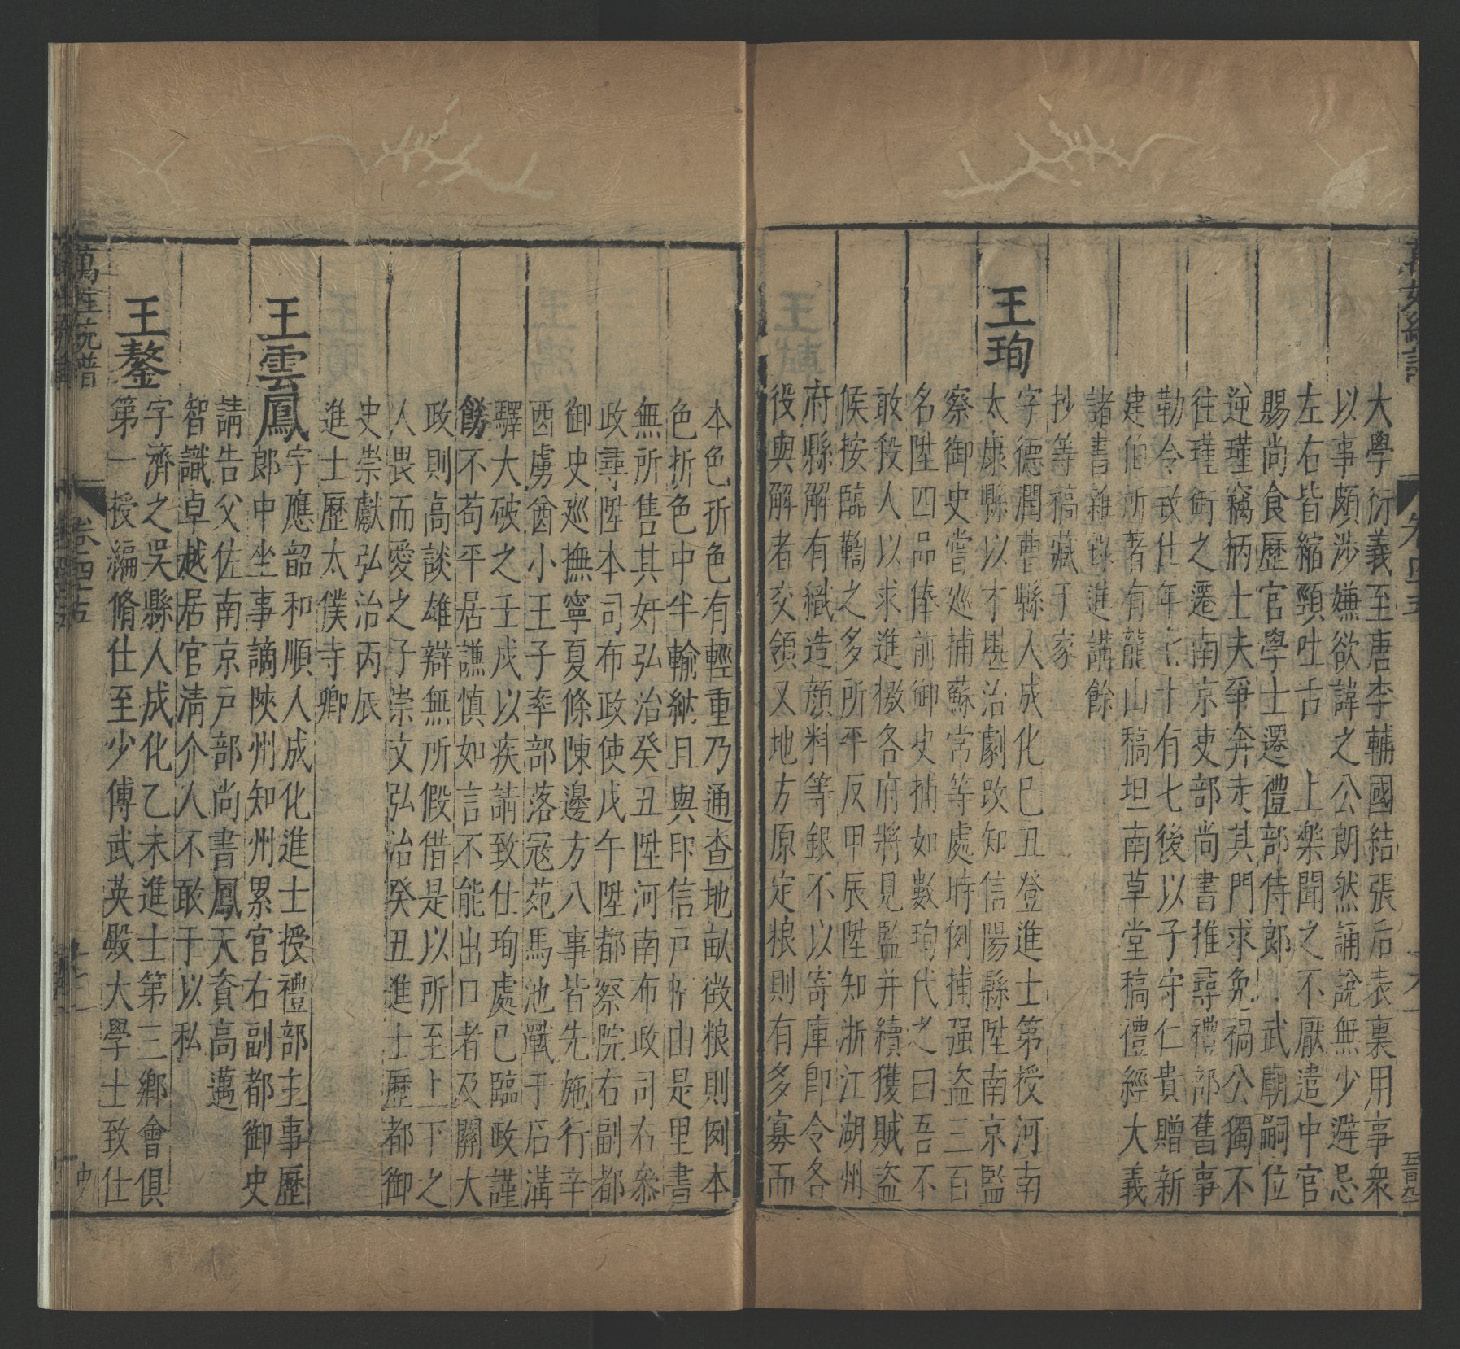 大學衍義至唐李輔國結張后表裏用事衆
以事頗涉嫌欲諱之公朗然誦說無少避忌
左右皆縮頸吐舌　上樂聞之不厭遣中官
賜尚食歷官學士遷禮部侍郎　武廟嗣位
逆瑾竊柄士夫爭奔走其門求免禍公獨不
往瑾銜之遷南京吏部尚書推尋禮部舊事
勒令致仕年七十有七後以子守仁貴贈新
建伯所著有龍山稿坦南草堂稿禮經大義
諸書雜錄進講餘
抄等稿藏于家
王珣
字德潤曹縣人成化己丑登進士第授河南
太康縣以才堪治劇改知信陽縣陞南京監
察御史嘗巡捕蘇常等處時例捕强盗三百
名陞四品俸前御史捕如數珣代之曰吾不
敢殺人以求進檄各府將見監并續獲賊盗
候按臨鞫之多所平反甲辰陞知浙江湖州
府縣解有織造顔料等銀不以寄庫即令各
役與解者交領又地方原定粮則有多寡而
本色折色有輕重乃通查地畝徵粮則例本
色折色中半輸納且與印信戸帖由是里書
無所售其奸弘治癸丑陞河南布政司右叅
政尋陞本司布政使戊午陞都察院右副都
御史巡撫寧夏條陳邊方八事皆先施行辛
酉虜酋小王子率部落冦苑馬池戰于石溝
驛大破之壬戌以疾請致仕珣處己臨政謹
飭不苟平居謙慎如言不能出口者及關大
政則高談雄辯無所假借是以所至上下之
人畏而愛之子崇文弘治癸丑進士歷都御
史崇獻弘治丙辰
進士歷太僕寺卿
王雲鳳
字應韶和順人成化進士授禮部主事歷
郎中坐事謫陝州知州累官右副都御史
請告父佐南京戸部尚書鳳天資高邁
智識卓越居官清介人不敢于以私
王鏊
字濟之吳縣人成化乙未進士第三鄉會俱
第一授編脩仕至少傅武英殿大學士致仕
萬姓統譜
卷四十五